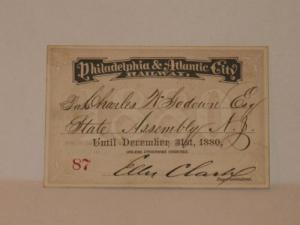 Philadelphia & Atlantic City
RAILWAY.
Charles
Esq
State Assembly N.J.
Until December 31st, 1880,
UNLESS OTHERWISE ORDERED.
87
Clark
Superintendent.